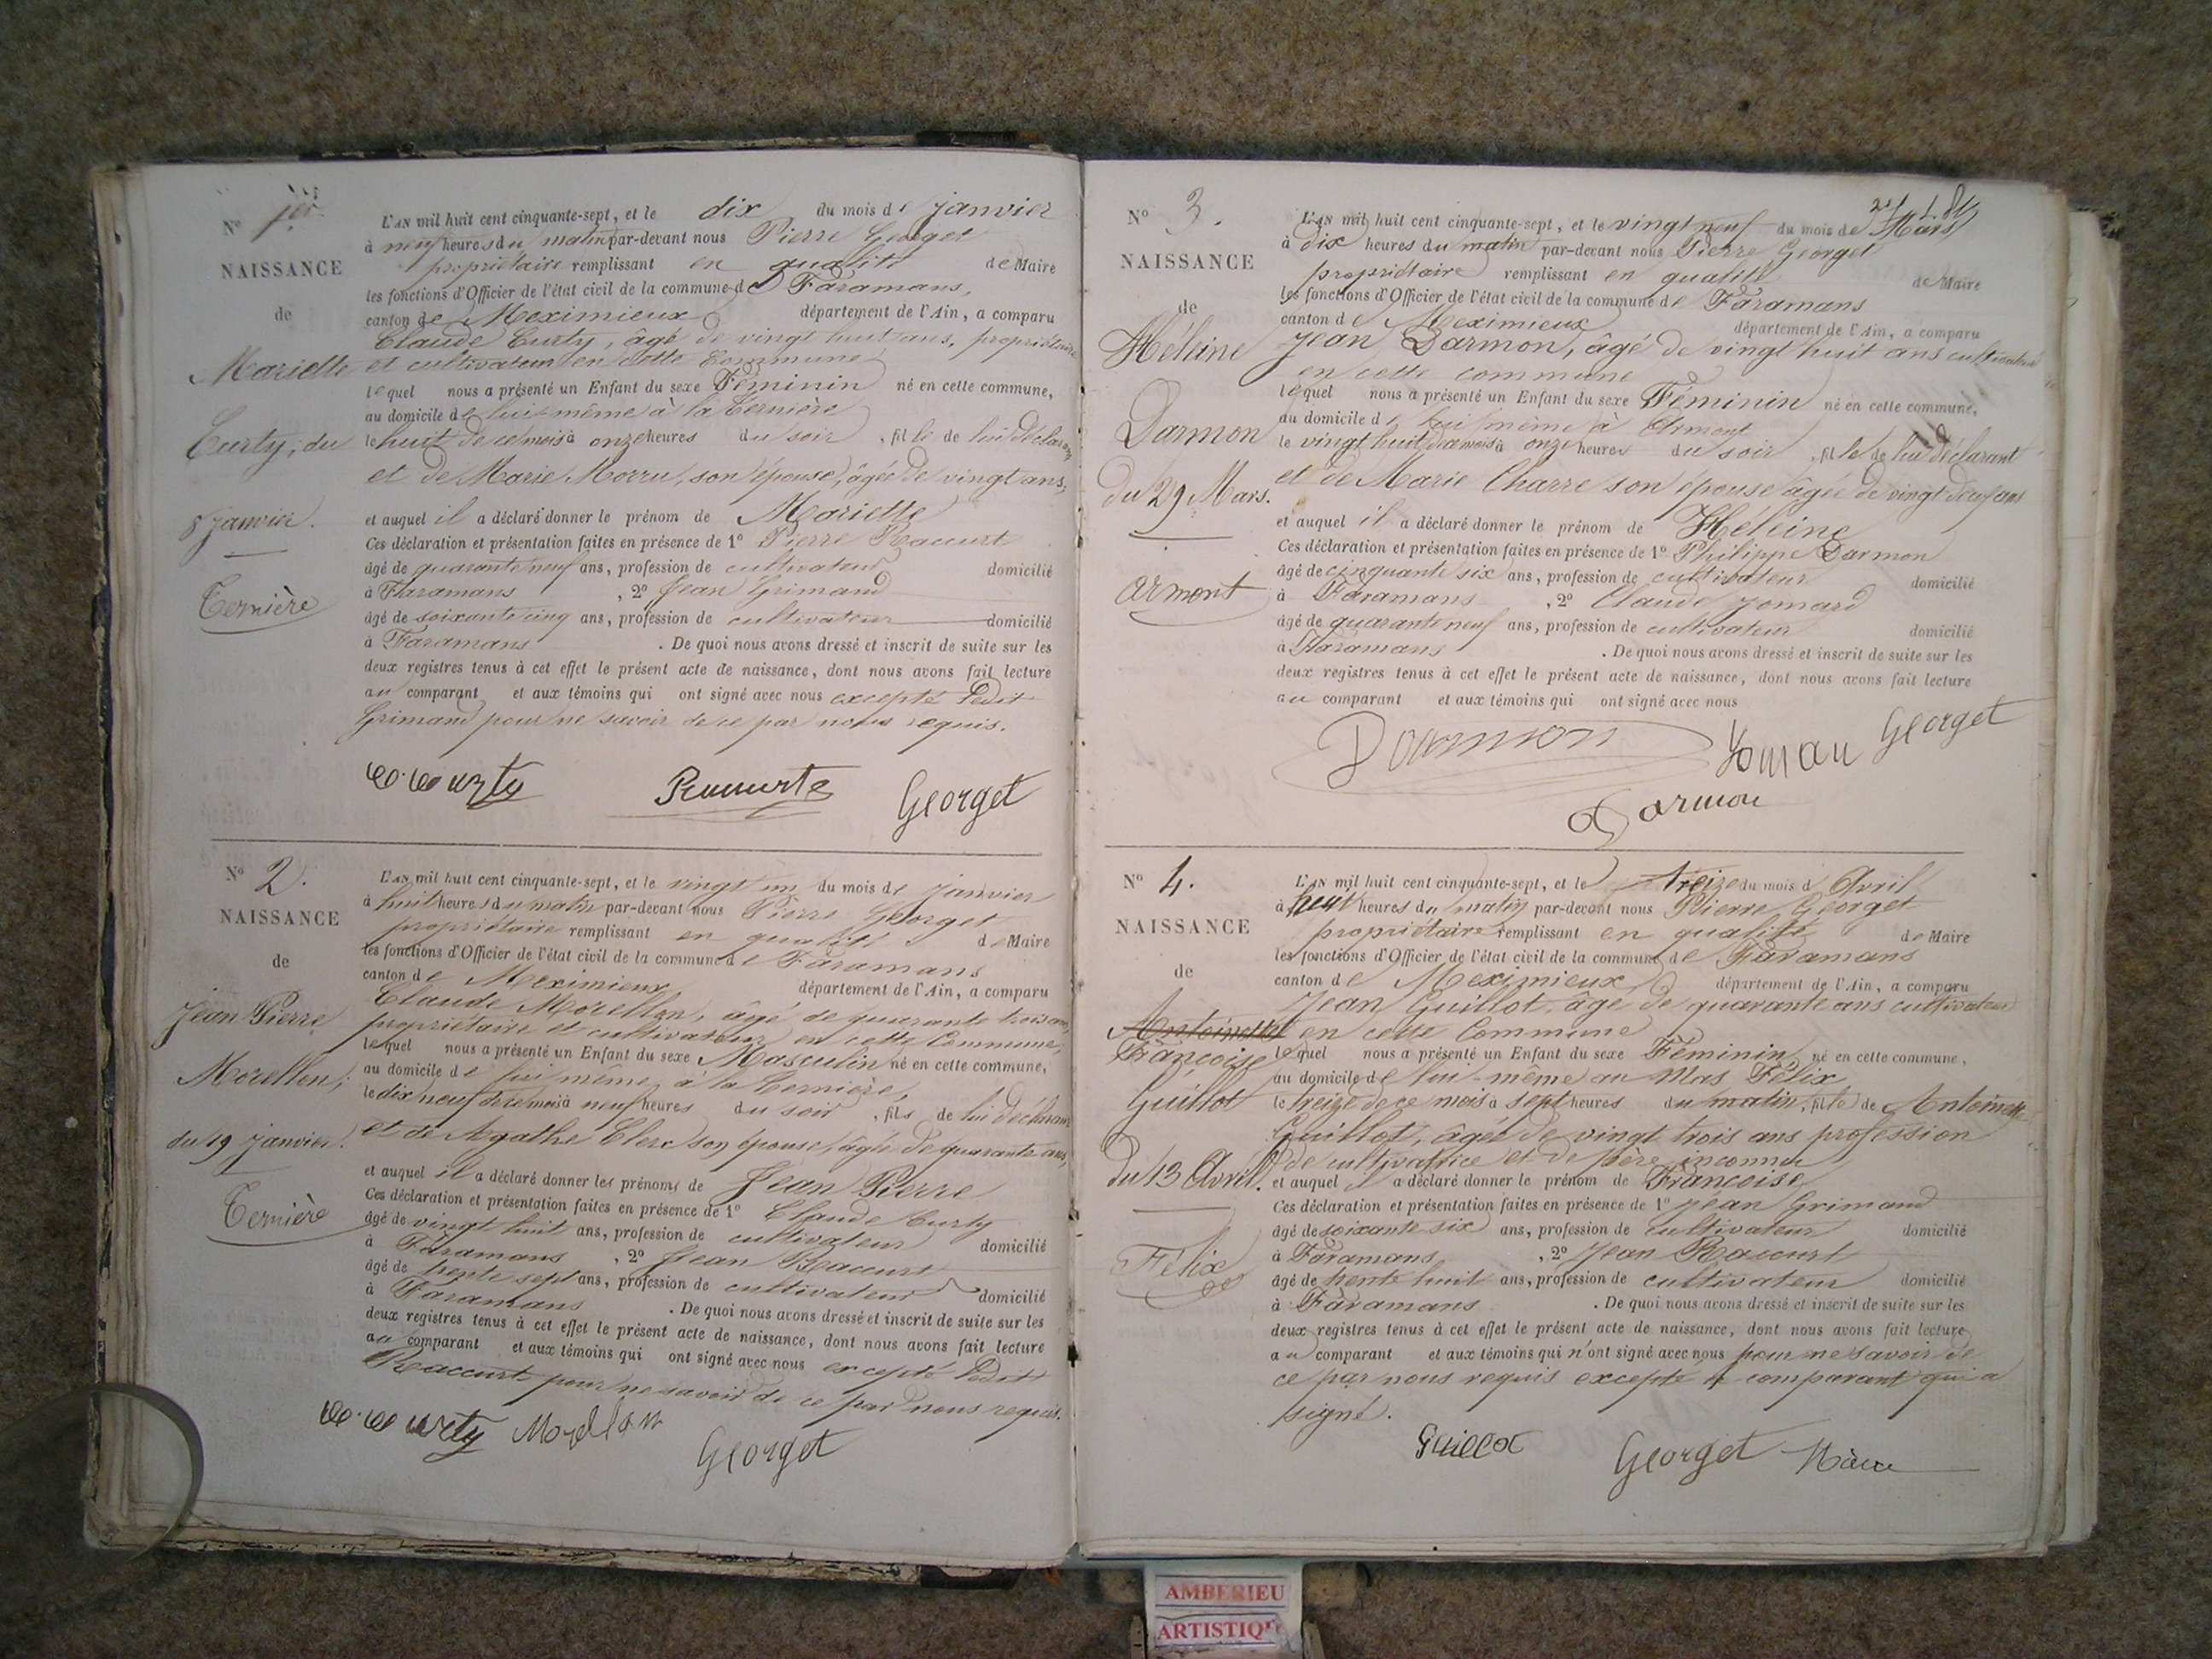 N° 1er
NAISSANCE
de
Mariette
Curty, du
8 janvier.
Ternière
L'AN mil huit cent cinquante-sept, et le dix du mois de janvier
à neuf heures du matin par-devant nous Pierre Georget
propriétaire remplissant en qualité de Maire
les fonctions d'Officier de l'état civil de la commune de Faramans,
canton de Meximieux département de l'Ain, a comparu
Claude Curty, âgé de vingt huit ans, propriétaire
et cultivateur en cette Commune
lequel nous a présenté un Enfant du sexe Féminin né en cette commune,
au domicile de lui-même à la Ternière
le huit de ce mois à onze heures du soir, fille de lui déclarant
et de Marie Morru, son épouse, âgée de vingt ans,
et auquel il a déclaré donner le prénom de Mariette
Ces déclaration et présentation faites en présence de 1° Pierre Raccurt
âgé de quarante neuf ans, profession de cultivateur domicilié
à Faramans, 2° Jean Grimand
âgé de soixante cinq ans, profession de cultivateur domicilié
à Faramans. De quoi nous avons dressé et inscrit de suite sur les
deux registres tenus à cet effet le présent acte de naissance, dont nous avons fait lecture
au comparant et aux témoins qui ont signé avec nous excepté ledit
Grimand pour ne savoir de ce par nous requis.
Curty Raccurt Georget
N° 2.
NAISSANCE
de
Jean Pierre
Morellon,
du 19 janvier.
Ternière
L'AN mil huit cent cinquante-sept, et le vingt un du mois de janvier
à huit heures du matin par-devant nous Pierre Georget
propriétaire remplissant en qualité de Maire
les fonctions d'Officier de l'état civil de la commune de Faramans
canton de Meximieux département de l'Ain, a comparu
Claude Morellon, âgé de quarante trois ans,
propriétaire et cultivateur en cette Commune,
lequel nous a présenté un Enfant du sexe Masculin né en cette commune,
au domicile de lui même à la Ternière,
le dix neuf de ce mois à neuf heures du soir, fils de lui déclarant
et de Agathe Clerc son épouse, âgée de quarante ans,
et auquel il a déclaré donner les prénoms de Jean Pierre
Ces déclaration et présentation faites en présence de 1° Claude Curty
âgé de vingt huit ans, profession de cultivateur domicilié
à Faramans, 2° Jean Raccurt
âgé de trente sept ans, profession de cultivateur domicilié
à Faramans. De quoi nous avons dressé et inscrit de suite sur les
deux registres tenus à cet effet le présent acte de naissance, dont nous avons fait lecture
au comparant et aux témoins qui ont signé avec nous excepté ledit
Raccurt pour ne savoir de ce par nous requis.
Curty Morellon Georget
N° 3.
NAISSANCE
de
Héleine
Darmon
du 29 Mars.
Armont
L'AN mil huit cent cinquante-sept, et le vingt neuf du mois de Mars
à dix heures du matin par-devant nous Pierre Georget
propriétaire remplissant en qualité de Maire
les fonctions d'Officier de l'état civil de la commune de Faramans
canton de Meximieux département de l'Ain, a comparu
Jean Darmon, âgé de vingt huit ans cultivateur
en cette commune
lequel nous a présenté un Enfant du sexe Féminin né en cette commune,
au domicile de lui même à Armont
le vingt huit de ce mois à onze heures du soir, fille de lui déclarant
et de Marie Charre son épouse âgée de vingt deux ans
et auquel il a déclaré donner le prénom de Héleine
Ces déclaration et présentation faites en présence de 1° Philippe Darmon
âgé de cinquante six ans, profession de cultivateur domicilié
à Faramans, 2° Claude Jomard
âgé de quarante neuf ans, profession de cultivateur domicilié
à Faramans. De quoi nous avons dressé et inscrit de suite sur les
deux registres tenus à cet effet le présent acte de naissance, dont nous avons fait lecture
au comparant et aux témoins qui ont signé avec nous
Darmon Georget
Darmon
N° 4.
NAISSANCE
de
Antoinette
Françoise
Guillot
du 13 Avril.
Félix
L'AN mil huit cent cinquante-sept, et le treize du mois d'Avril
à huit heures du matin par-devant nous Pierre Georget
propriétaire remplissant en qualité de Maire
les fonctions d'Officier de l'état civil de la commune de Faramans
canton de Meximieux département de l'Ain, a comparu
Jean Guillot, âgé de quarante ans cultivateur
en cette Commune
lequel nous a présenté un Enfant du sexe Féminin né en cette commune,
au domicile de lui-même au Mas Félix
le treize de ce mois à sept heures du matin, fille de Antoinette
Guillot, âgée de vingt trois ans profession
de cultivatrice et de père inconnu
et auquel il a déclaré donner le prénom de Françoise
Ces déclaration et présentation faites en présence de 1° Jean Grimand
âgé de soixante six ans, profession de cultivateur domicilié
à Faramans, 2° Jean Raccurt
âgé de trente huit ans, profession de cultivateur domicilié
à Faramans. De quoi nous avons dressé et inscrit de suite sur les
deux registres tenus à cet effet le présent acte de naissance, dont nous avons fait lecture
au comparant et aux témoins qui n'ont signé avec nous pour ne savoir de
ce par nous requis excepté le comparant qui a
signé.
Guillot Georget Maire
AMBERIEU
ARTISTIQU